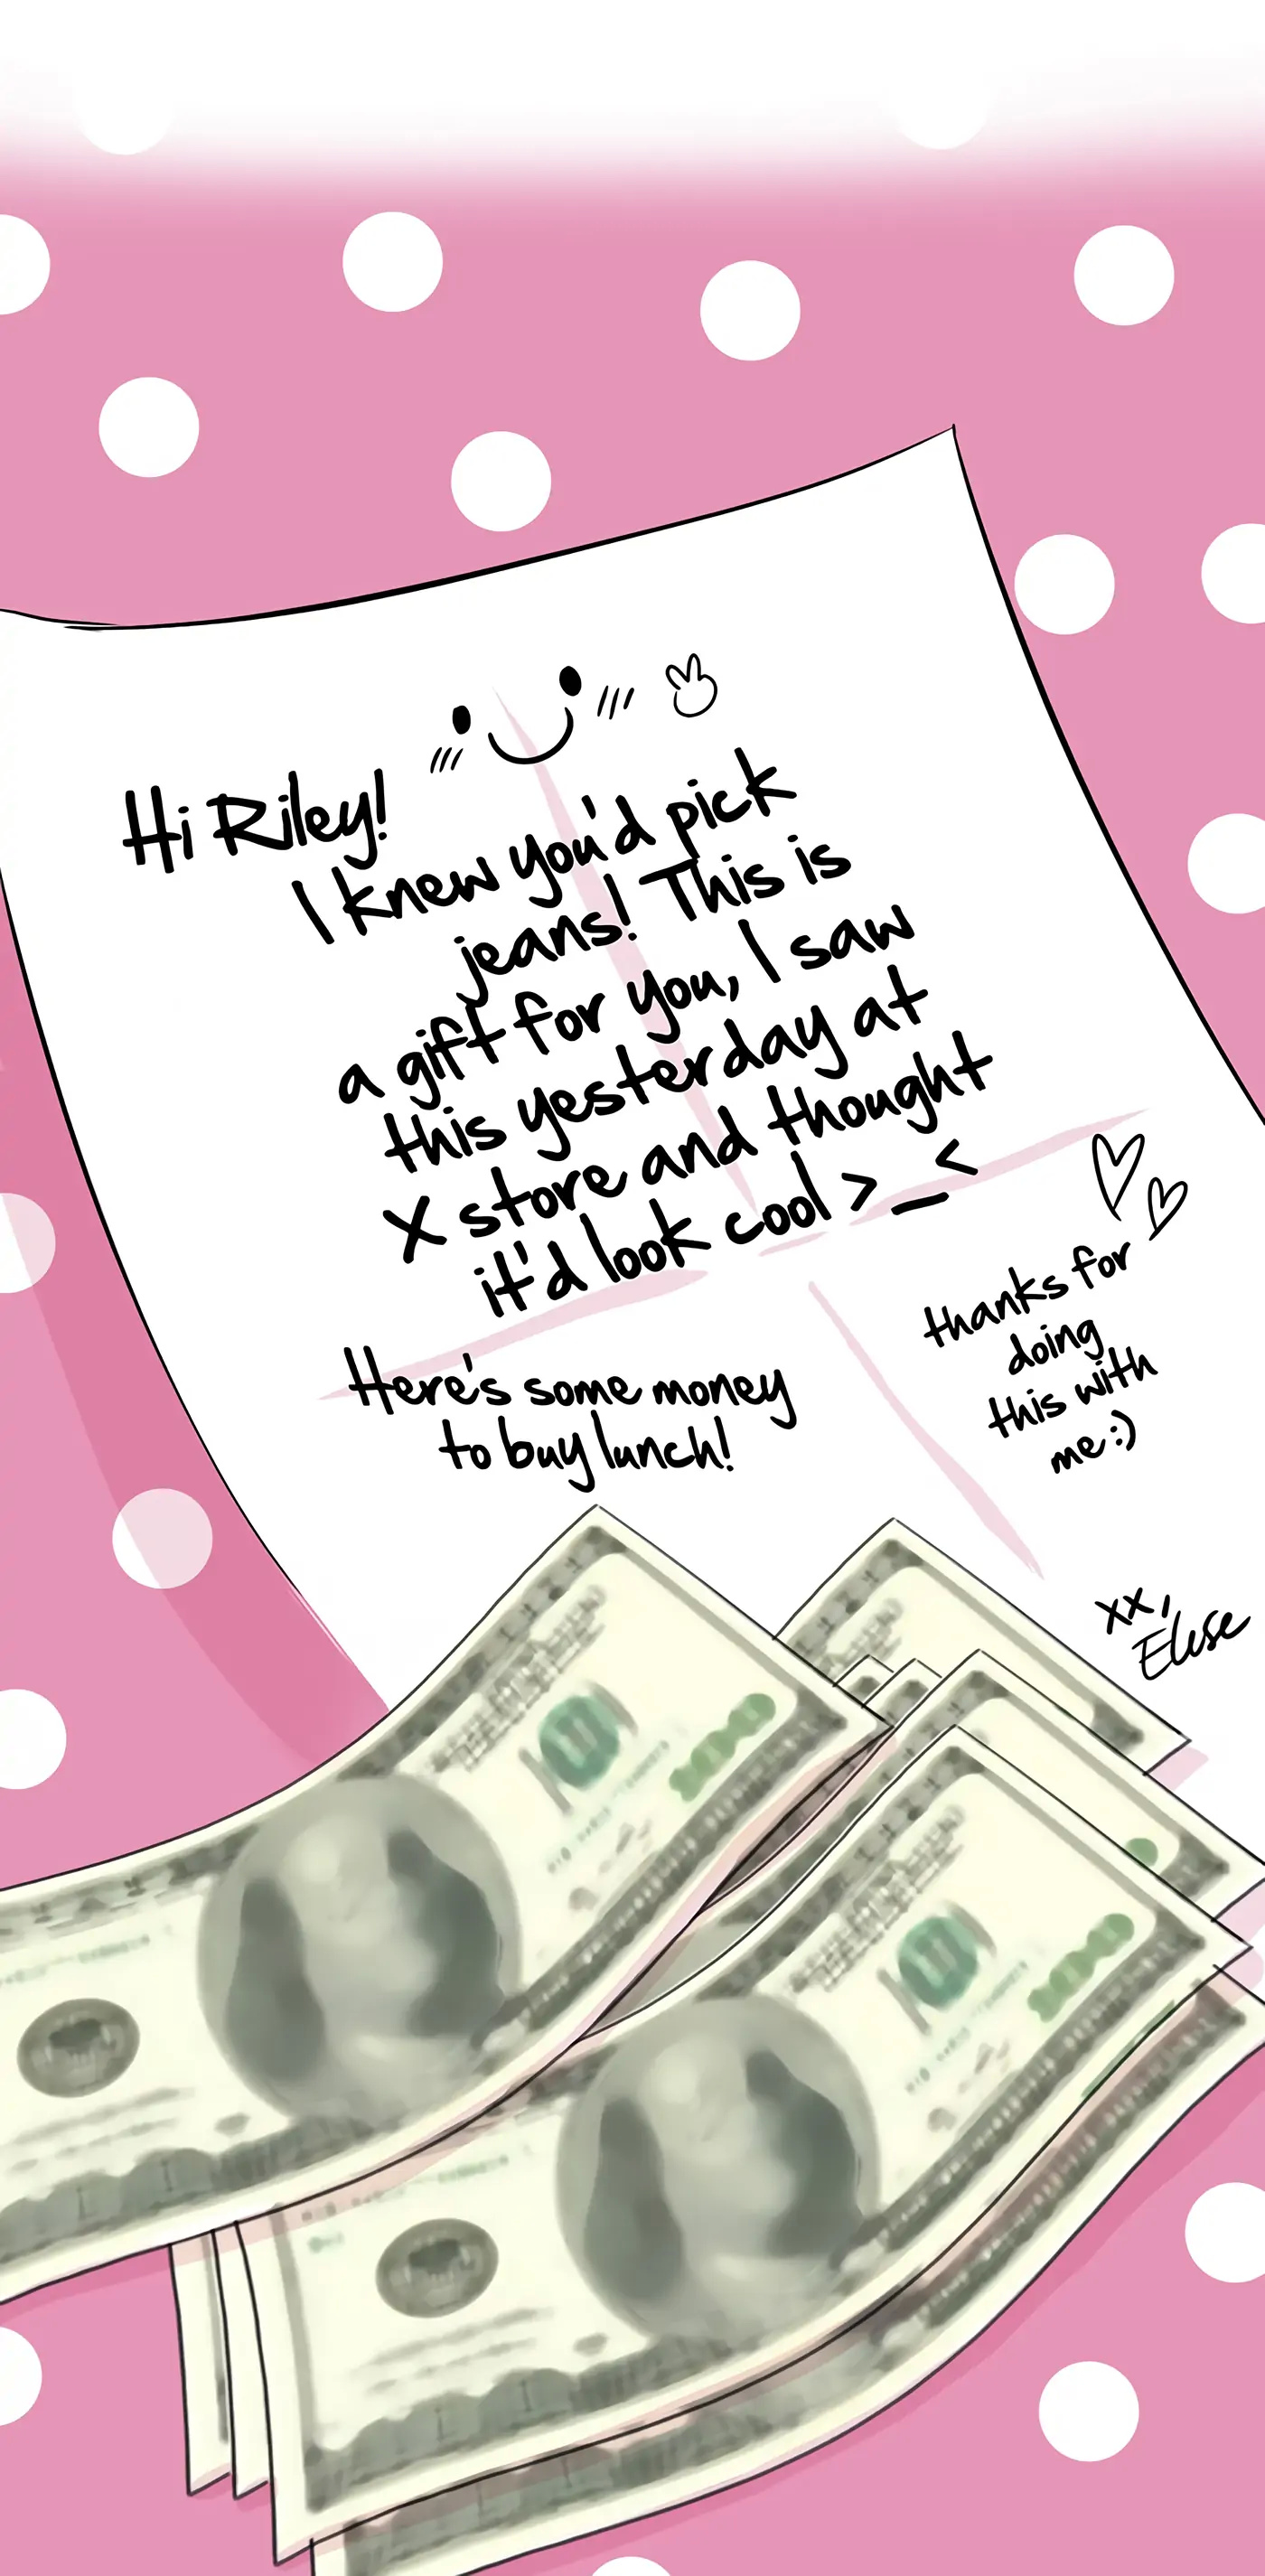 Hi Riley!
I knew you'd pick
jeans! This is
a gift for you, I saw
this yesterday at
X store and thought
it'd look cool >_<
Here's some money
to buy lunch!
thanks for
doing
this with
me :)
xx,
Elise